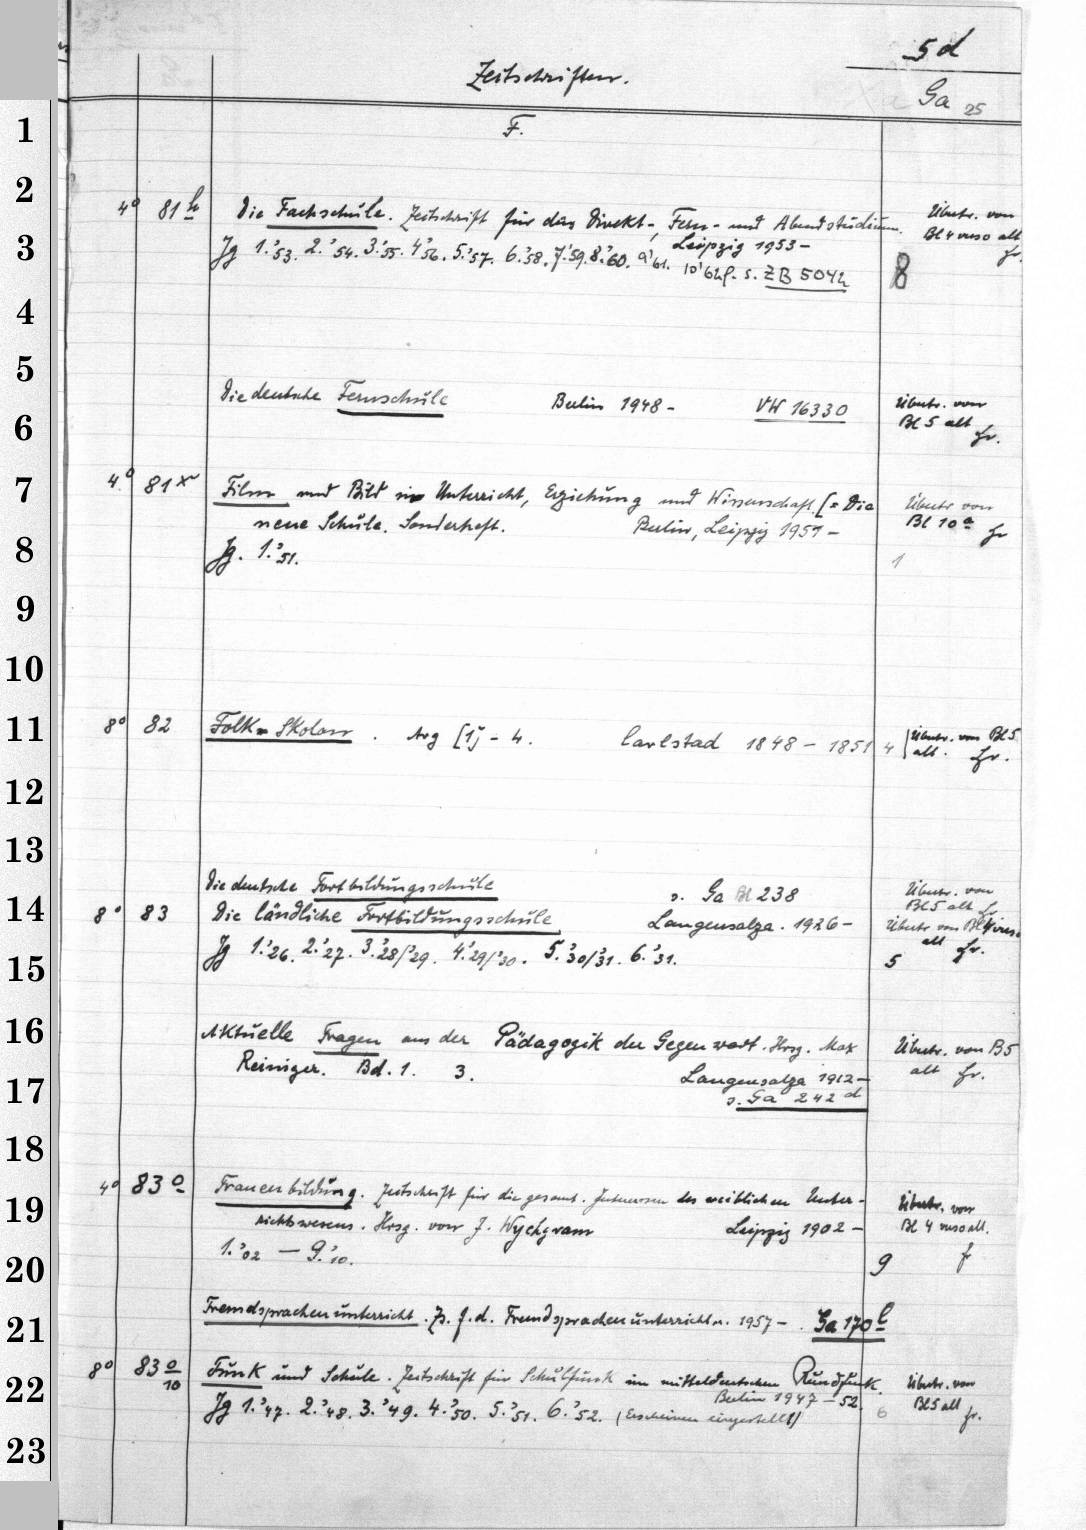 5 d
Zeitschriften.
Ga 25
F.
1
2
4° 81 h Die Fachschule. Zeitschrift für das Direkt-, Fern- und Abendstudium. Übertr. von
3 Jg 1.'53. 2.'54. 3.'55. 4.'56. 5.'57. 6.'58. 7.'59. 8.'60. 9.'61. Leipzig 1953– Bl 4 verso alt
10.'62 f. s. ZB 5042 8 fr.
4
5
Die deutsche Fernschule Berlin 1948– VW 16330 Übertr. von
6 Bl 5 alt fr.
7 4° 81 Film und Bild in Unterricht, Erziehung und Wissenschaft. [= Die Übertr von
neue Schule. Sonderheft. Berlin, Leipzig 1951– Bl 10 a fr
8 Jg. 1.'51. 1
9
10
11 8° 82 Folk-Skolan. Arg [1] – 4. Carlstad 1848 – 1851 4 Übertr. von Bl 5
alt. fr.
12
13
Die deutsche Fortbildungsschule s. Ga Bl 238 Übertr. von
Bl 5 alt fr
14 8° 83 Die ländliche Fortbildungsschule Langensalza. 1926– Übertr von Bl 4 verso
alt fr.
15 Jg 1.'26. 2.'27. 3.'28/'29. 4.'29/'30. 5.'30/31. 6.'31. 5
16 Aktuelle Fragen aus der Pädagogik der Gegenwart. Hrsg. Max Übertr. von B5
Reiniger. Bd. 1. 3. Langensalza 1912– alt fr.
17 s. Ga 242 d
18
4° 83 o Frauenbildung. Zeitschrift für die gesamt. Interessen des weiblichen Unter- Übertr. von
19 richtswesens. Hrsg. von J. Wychgram Leipzig 1902 – Bl 4 verso alt.
20 1.'02 – 9.'10. 9 fr
21 Fremdsprachenunterricht. Zs. f. d. Fremdsprachenunterricht. 1957 – . Ga 170 l
22 8° 83 o/10 Funk und Schule. Zeitschrift für Schulfunk im mitteldeutschen Rundfunk. Übertr. von
Berlin 1947 – 52. Bl 5 alt
Jg 1.'47. 2.'48. 3.'49. 4.'50. 5.'51. 6.'52. (Erscheinen eingestellt) 6 fr.
23